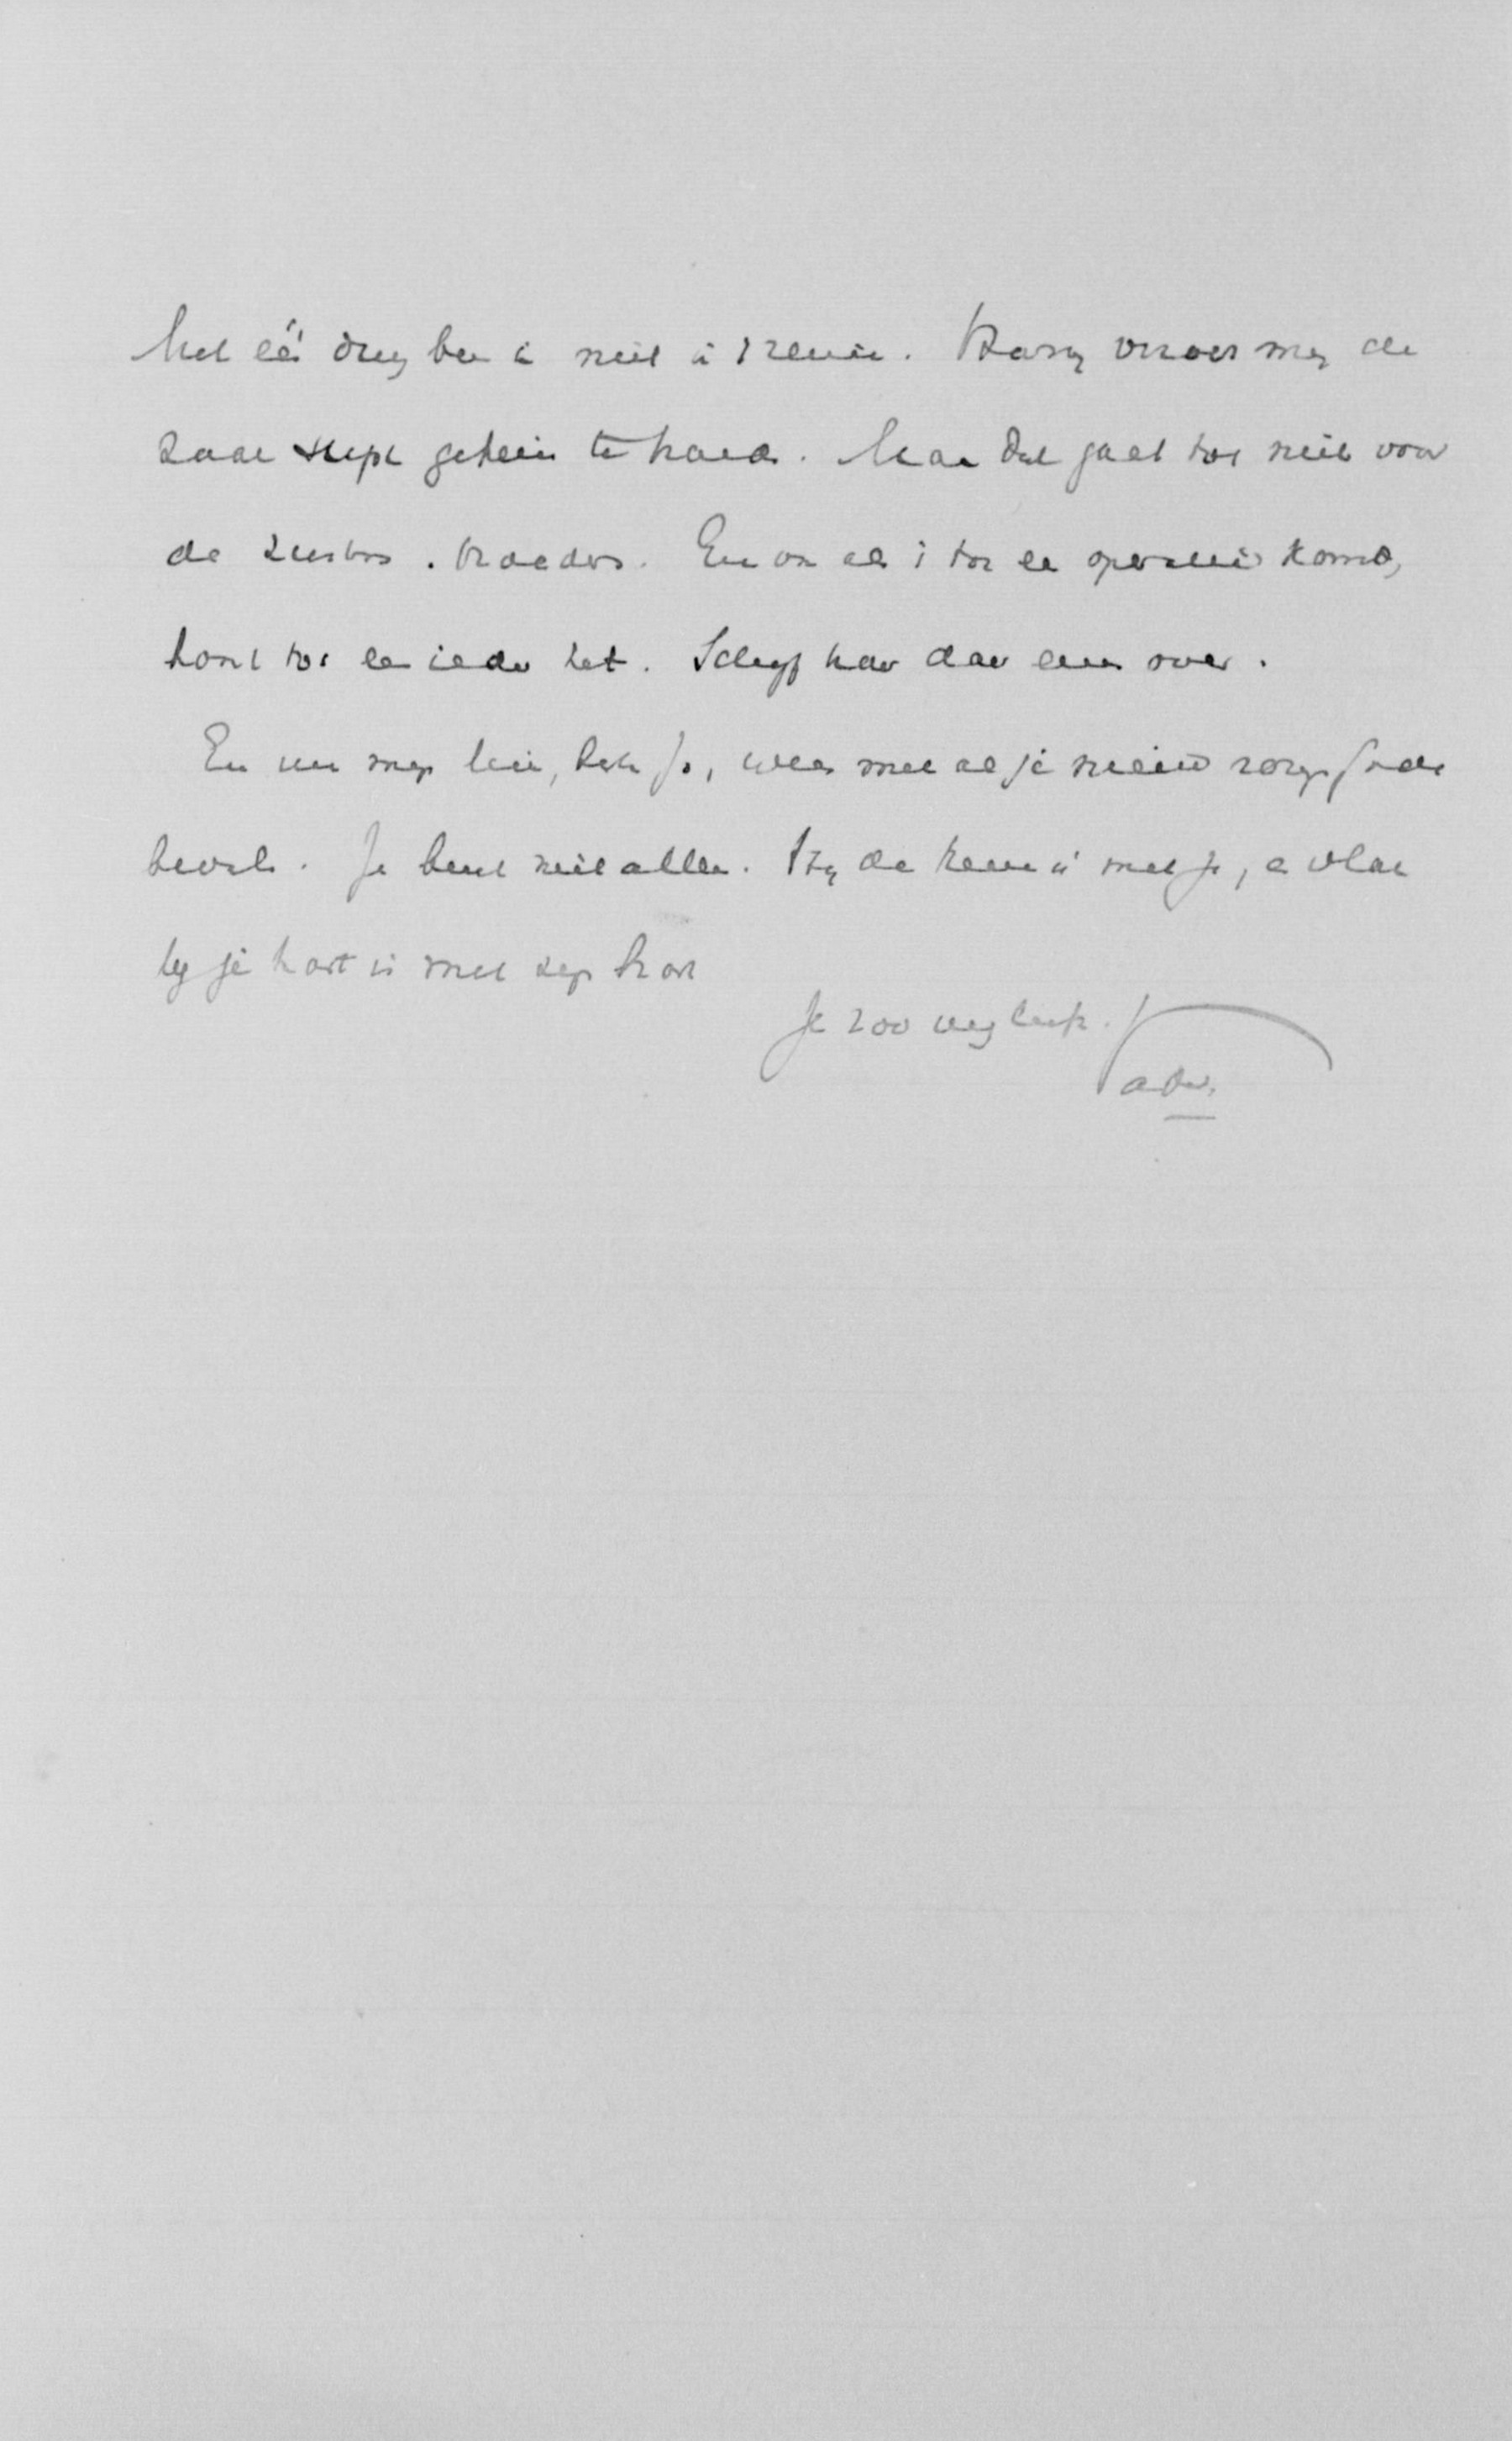 Met één ding ben ik niet tevreden. Harry verzoekt mij de
zaak strikt geheim te houden. Maar dat gaat toch niet voor
de zusters en broeders. En ook als 't tot een operatie komt,
hoort toch een ieder het. Schrijf haar daar eens over.
En nu mijn lieve, beste Jo, wees met al je nieuwe zorg Gode
bevolen. Je bent niet alleen. Hij de Heere is met je, en vlak
bij je hart is met zijn hart
Je zoo innig liefh.
Vader.